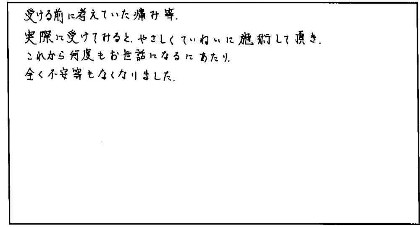 受ける前に考えていた痛み等、
実際に受けてみると、やさしくていねいに施術して頂き、
これから何度もお世話になるにあたり、
全く不安等もなくなりました。